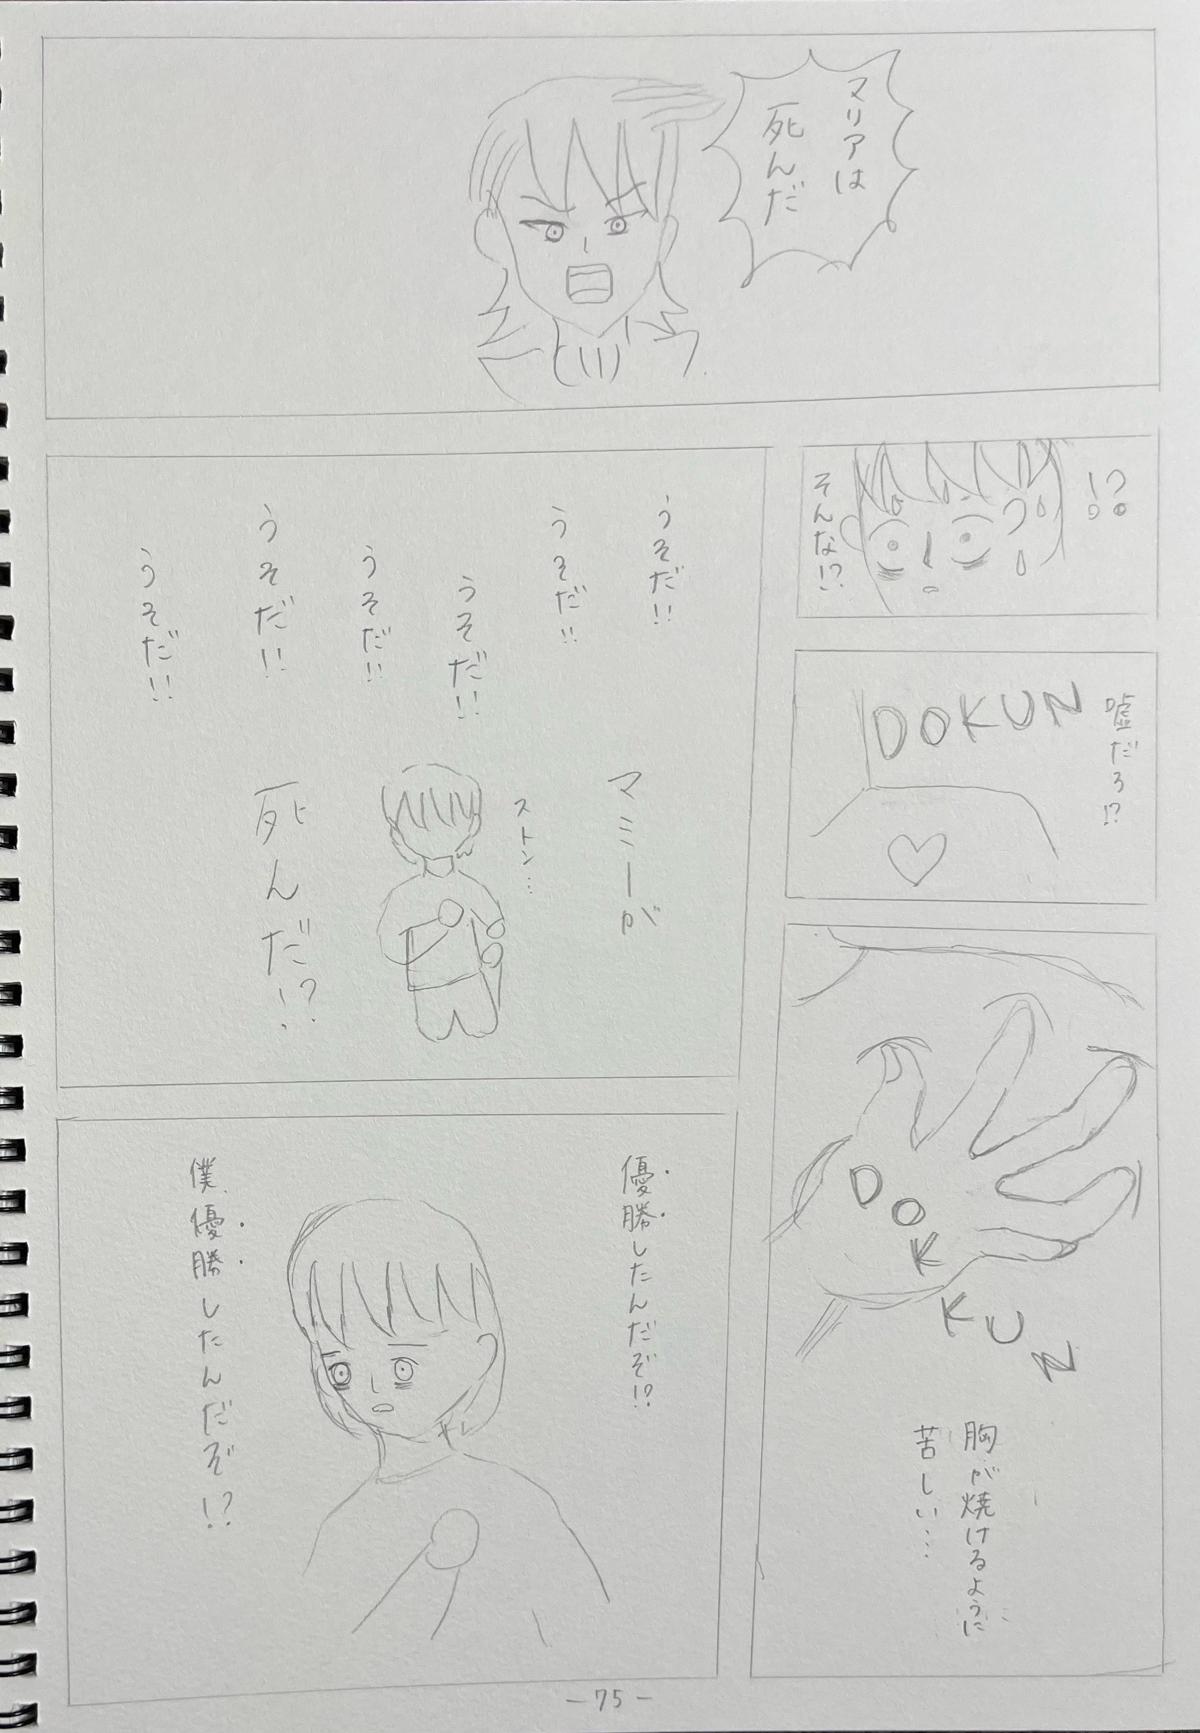 マリアは
死んだ
!?
そんな!?
嘘だろ!?
DOKUN
DOKKUN
胸が焼けるように
苦しい…
うそだ!!
うそだ!!
うそだ!!
うそだ!!
うそだ!!
うそだ!!
マミーが
ストン…
死んだ!?
優勝したんだぞ!?
僕、優勝したんだぞ!?
-75-